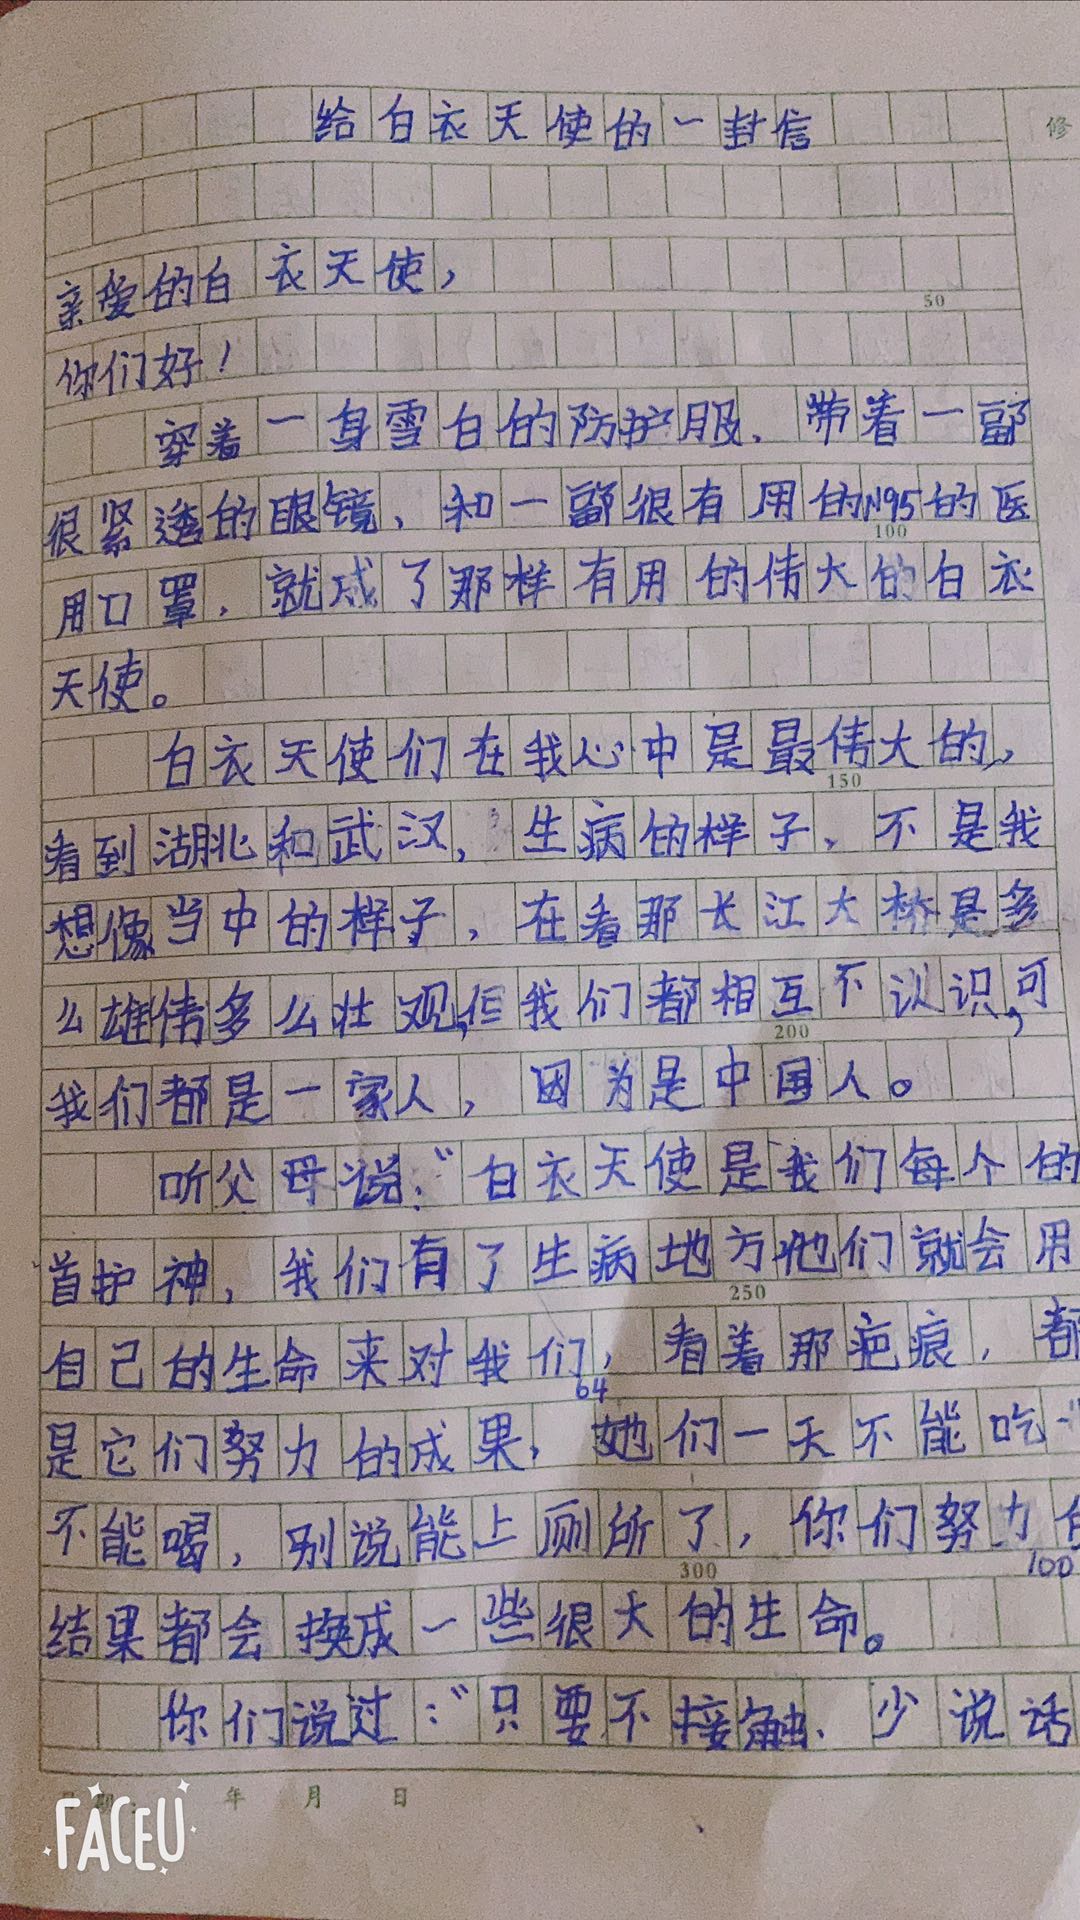 给白衣天使的一封信
修
亲爱的白衣天使,
50
你们好!
穿着一身雪白的防护服、带着一副
很紧透的眼镜、和一副很有用的N95的医
100
用口罩,就成了那样有用的伟大的白衣
天使。
白衣天使们在我心中是最伟大的,
150
看到湖北和武汉,生病的样子,不是我
想像当中的样子,在看那长江大桥是多
么雄伟多么壮观,但我们都相互不认识,可
200
我们都是一家人,因为是中国人。
听父母说:“白衣天使是我们每个的
首护神,我们有了生病地方他们就会用
250
自己的生命来对我们,看着那疤痕,都
64
是它们努力的成果,她们一天不能吃
不能喝,别说能上厕所了,你们努力
300
100
结果都会换成一些很大的生命。
你们说过:“只要不接触、少说话
年 月 日
FACEU